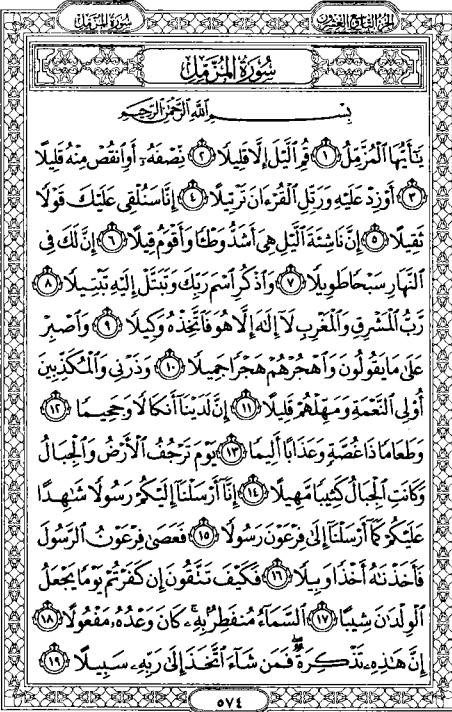 سُورَةُ المُزَّمِّل
الجُزءُ التَّاسِعُ وَالعِشْرُون
سُورَةُ المُزَّمِّلِ
بِسْمِ اللَّهِ الرَّحْمَٰنِ الرَّحِيمِ
يَٰٓأَيُّهَا ٱلْمُزَّمِّلُ ١ قُمِ ٱلَّيْلَ إِلَّا قَلِيلًا ٢ نِّصْفَهُۥٓ أَوِ ٱنقُصْ مِنْهُ قَلِيلًا
٣ أَوْ زِدْ عَلَيْهِ وَرَتِّلِ ٱلْقُرْءَانَ تَرْتِيلًا ٤ إِنَّا سَنُلْقِى عَلَيْكَ قَوْلًا
ثَقِيلًا ٥ إِنَّ نَاشِئَةَ ٱلَّيْلِ هِىَ أَشَدُّ وَطْـًٔا وَأَقْوَمُ قِيلًا ٦ إِنَّ لَكَ فِى
ٱلنَّهَارِ سَبْحًا طَوِيلًا ٧ وَٱذْكُرِ ٱسْمَ رَبِّكَ وَتَبَتَّلْ إِلَيْهِ تَبْتِيلًا ٨
رَّبُّ ٱلْمَشْرِقِ وَٱلْمَغْرِبِ لَآ إِلَٰهَ إِلَّا هُوَ فَٱتَّخِذْهُ وَكِيلًا ٩ وَٱصْبِرْ
عَلَىٰ مَا يَقُولُونَ وَٱهْجُرْهُمْ هَجْرًا جَمِيلًا ١٠ وَذَرْنِى وَٱلْمُكَذِّبِينَ
أُو۟لِى ٱلنَّعْمَةِ وَمَهِّلْهُمْ قَلِيلًا ١١ إِنَّ لَدَيْنَآ أَنكَالًا وَجَحِيمًا ١٢
وَطَعَامًا ذَا غُصَّةٍ وَعَذَابًا أَلِيمًا ١٣ يَوْمَ تَرْجُفُ ٱلْأَرْضُ وَٱلْجِبَالُ
وَكَانَتِ ٱلْجِبَالُ كَثِيبًا مَّهِيلًا ١٤ إِنَّآ أَرْسَلْنَآ إِلَيْكُمْ رَسُولًا شَٰهِدًا
عَلَيْكُمْ كَمَآ أَرْسَلْنَآ إِلَىٰ فِرْعَوْنَ رَسُولًا ١٥ فَعَصَىٰ فِرْعَوْنُ ٱلرَّسُولَ
فَأَخَذْنَٰهُ أَخْذًا وَبِيلًا ١٦ فَكَيْفَ تَتَّقُونَ إِن كَفَرْتُمْ يَوْمًا يَجْعَلُ
ٱلْوِلْدَٰنَ شِيبًا ١٧ ٱلسَّمَآءُ مُنفَطِرٌۢ بِهِۦ ۚ كَانَ وَعْدُهُۥ مَفْعُولًا ١٨
إِنَّ هَٰذِهِۦ تَذْكِرَةٌ ۖ فَمَن شَآءَ ٱتَّخَذَ إِلَىٰ رَبِّهِۦ سَبِيلًا ١٩
٥٧٤